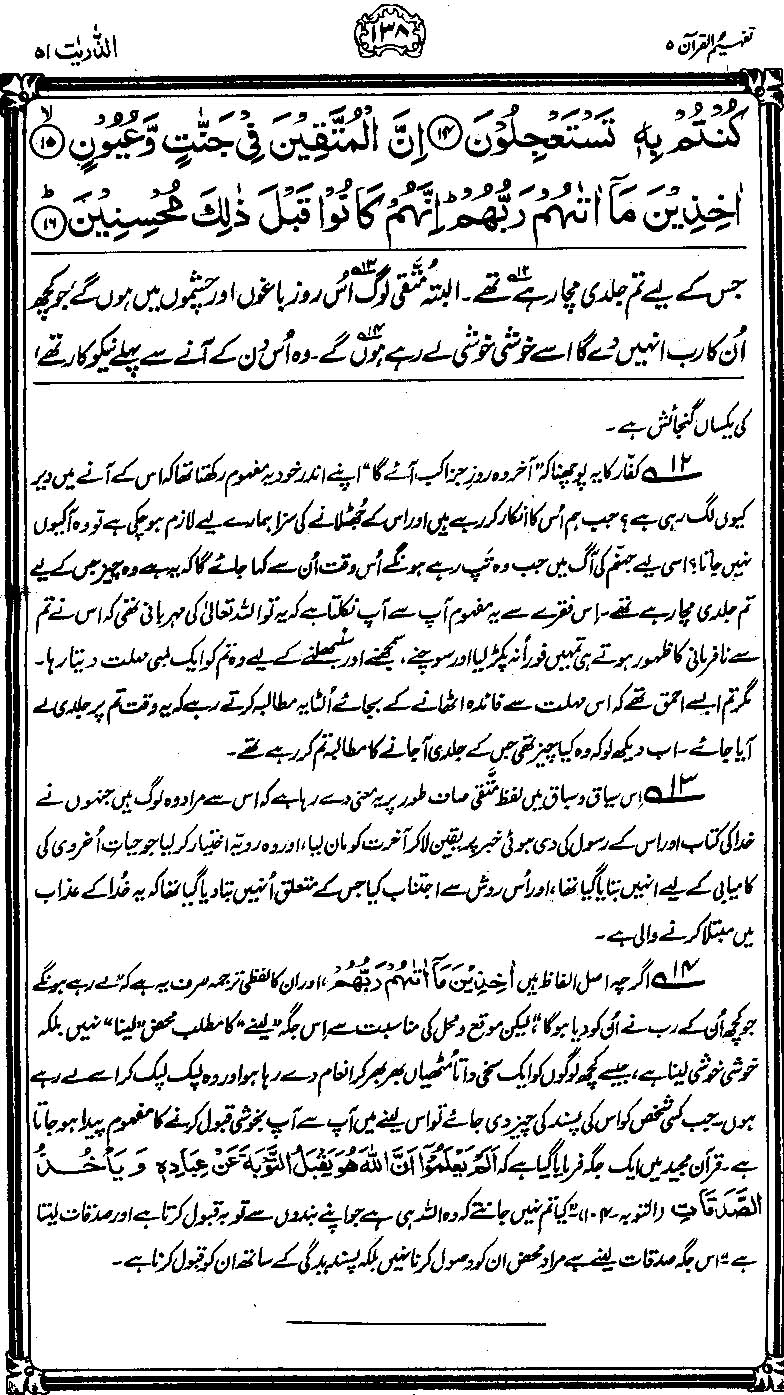 تفہیم القرآن ۵
۱۳۸
الذّٰریٰت ۵۱
كُنْتُمْ بِهٖ تَسْتَعْجِلُوْنَ ﴿۱۴﴾ اِنَّ الْمُتَّقِيْنَ فِيْ جَنّٰتٍ وَّعُيُوْنٍ ﴿۱۵﴾ۙ
اٰخِذِيْنَ مَآ اٰتٰىهُمْ رَبُّهُمْ ؕ اِنَّهُمْ كَانُوْا قَبْلَ ذٰلِكَ مُحْسِنِيْنَ ﴿۱۶﴾ؕ
جس کے لیے تم جلدی مچا رہے تھے۱۲۔ البتہ متّقی لوگ۱۳ اُس روز باغوں اور چشموں میں ہوں گے، جو کچھ
اُن کا رب انہیں دے گا اسے خوشی خوشی لے رہے ہوں گے۱۴۔ وہ اُس دن کے آنے سے پہلے نیکو کار تھے،
کی یکساں گنجائش ہے۔
۱۲ کفّار کا یہ پوچھنا کہ ”آخر وہ روزِ جزا کب آئے گا“ اپنے اندر خود یہ مفہوم رکھتا تھا کہ اس کے آنے میں دیر
کیوں لگ رہی ہے؟ جب ہم اُس کا انکار کر رہے ہیں اور اس کے جُھٹلانے کی سزا ہمارے لیے لازم ہو چکی ہے تو وہ آ کیوں
نہیں جاتا؟ اسی لیے جہنّم کی آگ میں جب وہ تپ رہے ہونگے اُس وقت اُن سے کہا جائے گا کہ یہ ہے وہ چیز جس کے لیے
تم جلدی مچا رہے تھے۔ اِس فقرے سے یہ مفہوم آپ سے آپ نکلتا ہے کہ یہ تو اللہ تعالیٰ کی مہربانی تھی کہ اس نے تم
سے نافرمانی کا ظہور ہوتے ہی تمہیں فوراً نہ پکڑ لیا اور سوچنے، سمجھنے اور سنبھلنے کے لیے وہ تم کو ایک لمبی مہلت دیتا رہا۔
مگر تم ایسے احمق تھے کہ اس مہلت سے فائدہ اٹھانے کے بجائے اُلٹا یہ مطالبہ کرتے رہے کہ یہ وقت تم پر جلدی لے
آیا جائے۔ اب دیکھ لو کہ وہ کیا چیز تھی جس کے جلدی آجانے کا مطالبہ تم کر رہے تھے۔
۱۳ اِس سیاق و سباق میں لفظ متّقی صاف طور پر یہ معنی دے رہا ہے کہ اس سے مراد وہ لوگ ہیں جنہوں نے
خدا کی کتاب اور اس کے رسول کی دی ہوئی خبر پر یقین لا کر آخرت کو مان لیا، اور وہ رویّہ اختیار کر لیا جو حیاتِ اُخروی کی
کامیابی کے لیے انہیں بتایا گیا تھا، اور اُس روش سے اجتناب کیا جس کے متعلق اُنہیں بتا دیا گیا تھا کہ یہ خُدا کے عذاب
میں مبتلا کرنے والی ہے۔
۱۴ اگرچہ اصل الفاظ ہیں اٰخِذِيْنَ مَآ اٰتٰىهُمْ رَبُّهُمْ، اور ان کا لفظی ترجمہ صرف یہ ہے کہ ”لے رہے ہونگے
جو کچھ اُن کے رب نے اُن کو دیا ہوگا“، لیکن موقع و محل کی مناسبت سے اِس جگہ ”لینے“ کا مطلب محض ”لینا“ نہیں بلکہ
خوشی خوشی لینا ہے، جیسے کچھ لوگوں کو ایک سخی داتا مُٹھیاں بھر بھر کر انعام دے رہا ہو اور وہ لپک لپک کر اسے لے رہے
ہوں۔ جب کسی شخص کو اس کی پسند کی چیز دی جائے تو اس لینے میں آپ سے آپ بخوشی قبول کرنے کا مفہوم پیدا ہو جاتا
ہے۔ قرآن مجید میں ایک جگہ فرمایا گیا ہے کہ اَلَمْ يَعْلَمُوْٓا اَنَّ اللّٰهَ هُوَ يَقْبَلُ التَّوْبَةَ عَنْ عِبَادِهٖ وَيَأْخُذُ
الصَّدَقٰتِ (التوبہ-۱۰۴) ”کیا تم نہیں جانتے کہ وہ اللہ ہی ہے جو اپنے بندوں سے توبہ قبول کرتا ہے اور صدقات لیتا
ہے“ اس جگہ صدقات لینے سے مراد محض ان کو وصول کرنا نہیں بلکہ پسندیدگی کے ساتھ ان کو قبول کرنا ہے۔